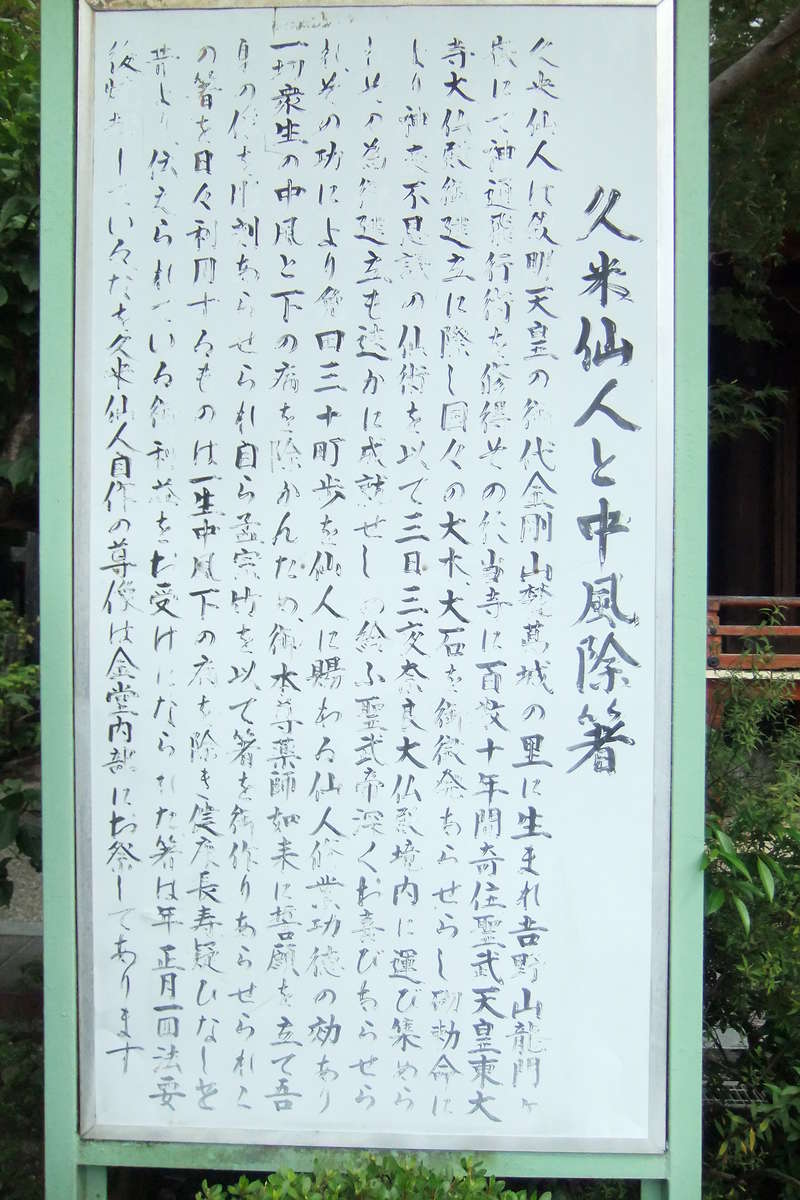 久米仙人と中風除箸
久米仙人は欽明天皇の御代金剛山麓葛城の里に生まれ吉野山龍門ヶ
嶽にて神通飛行術を修得その後当寺に百数十年間寄住聖武天皇東大
寺大仏殿御建立に際し国々の大木、大石を御徴発あらせらし勅命に
より神変不思議の仙術を以て三日三夜奈良大仏殿境内に運び集めら
れ其の為御建立も速かに成就せしめ給ふ聖武帝深くお喜びあらせら
れ、その功により免田三十町歩を仙人に賜わる仙人修業功徳の効あり
一切衆生の中風と下の病を除かんため、御本尊薬師如来に誓願を立て吾
身の像を彫刻あらせられ自ら孟宗竹を以て箸を御作りあらせられこ
の箸を日々利用するものは一生中風下の病を除き健康長寿疑ひなしと
昔より伝えられている御利益をお受けになられた箸は年正月一回法要
後 しているなを久米仙人自作の尊像は金堂内部にお祭してあります